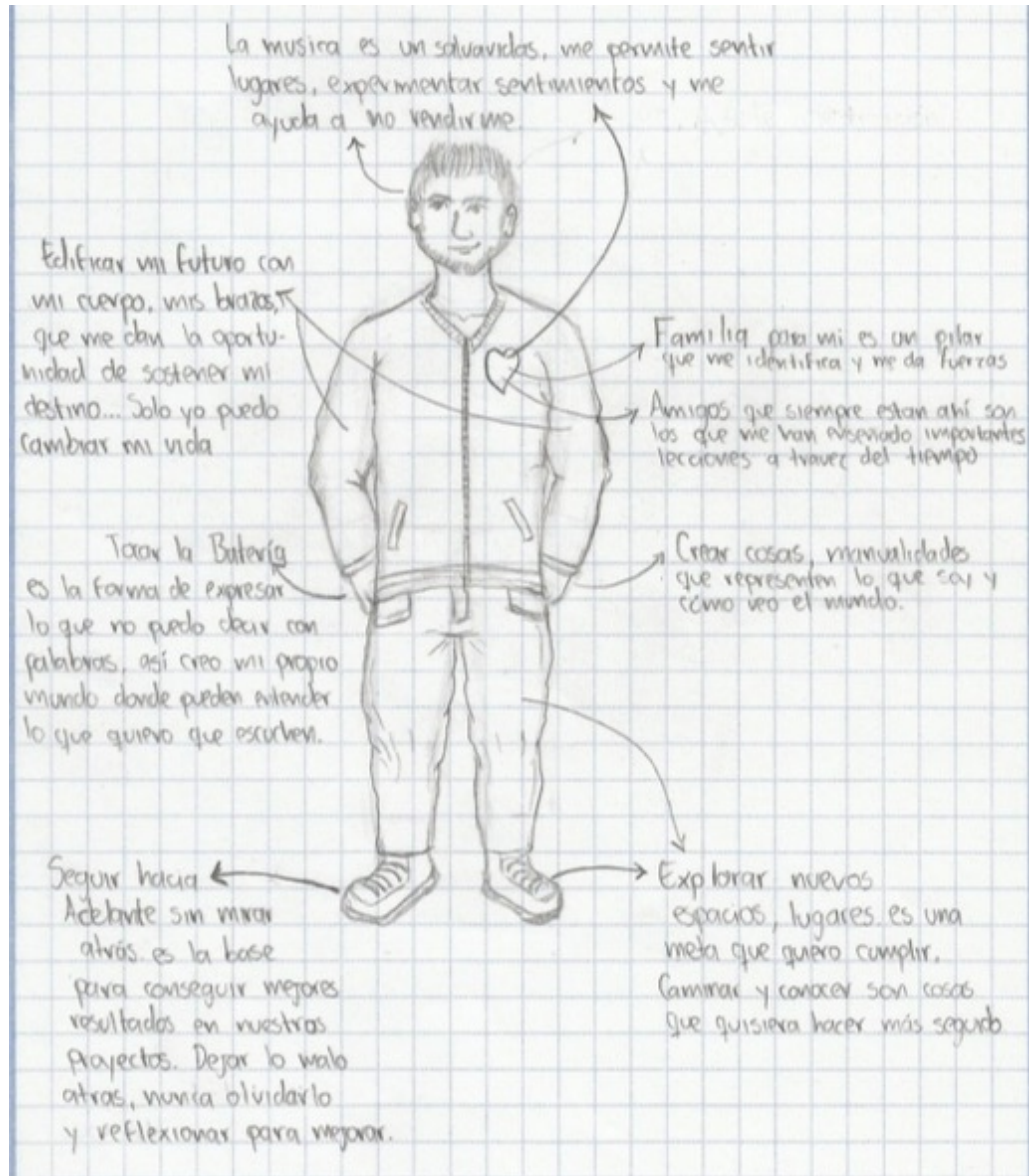 La musica es un salvavidas, me permite sentir
lugares, experimentar sentimientos y me
ayuda a no rendirme.
Edificar mi futuro con
mi cuerpo, mis brazos,
que me dan la oportu-
nidad de sostener mi
destino... Solo yo puedo
cambiar mi vida
Familia para mi es un pilar
que me identifica y me da fuerzas
Amigos que siempre estan ahí son
los que me han enseñado importantes
lecciones a travez del tiempo
Tocar la Batería
es la forma de expresar
lo que no puedo decir con
palabras, así creo mi propio
mundo donde pueden entender
lo que quiero que escuchen.
Crear cosas, manualidades
que representen lo que soy y
cómo veo el mundo.
Seguir hacia
Adelante sin mirar
atrás es la base
para conseguir mejores
resultados en nuestros
proyectos. Dejar lo malo
atras, nunca olvidarlo
y reflexionar para mejorar.
Explorar nuevos
espacios, lugares es una
meta que quiero cumplir.
Caminar y conocer son cosas
que quisiera hacer más seguido